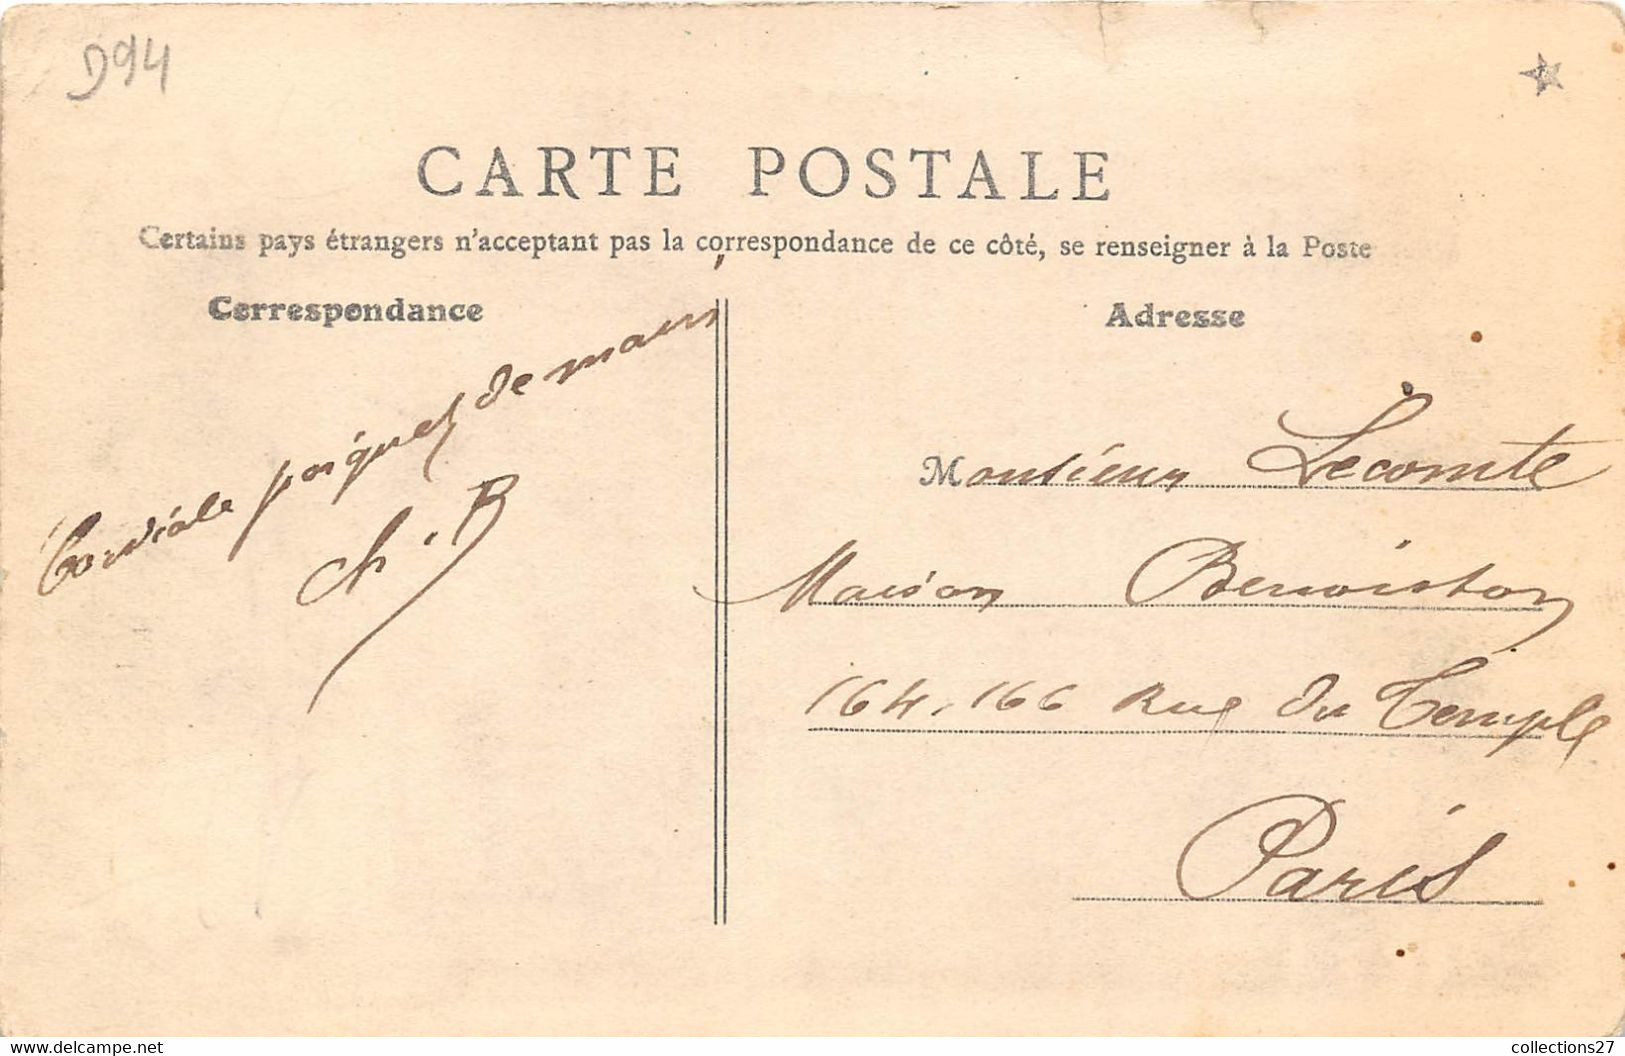 D94
CARTE POSTALE
Certains pays étrangers n'acceptant pas la correspondance de ce côté, se renseigner à la Poste
Correspondance
Cordiale poignée de main
Ch. B
Adresse
Monsieur Lecomte
Maison Benoiston
164, 166 Rue du Temple
Paris
www.delcampe.net
collections27